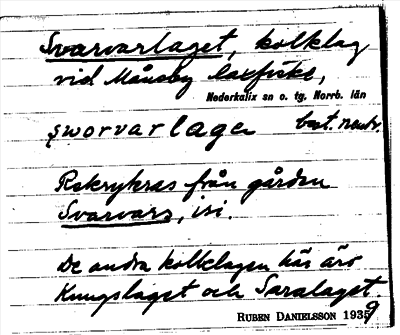 Svarvarlaget, kolklag
vid Månsby laxfiske,
Nederkalix sn o. tg. Norrb. län
best. neutr.
Rekryteras från gården
Svarvars, isi.
De andra kolklagen här äro
Kungslaget och Saralaget.
RUBEN DANIELSSON 1939